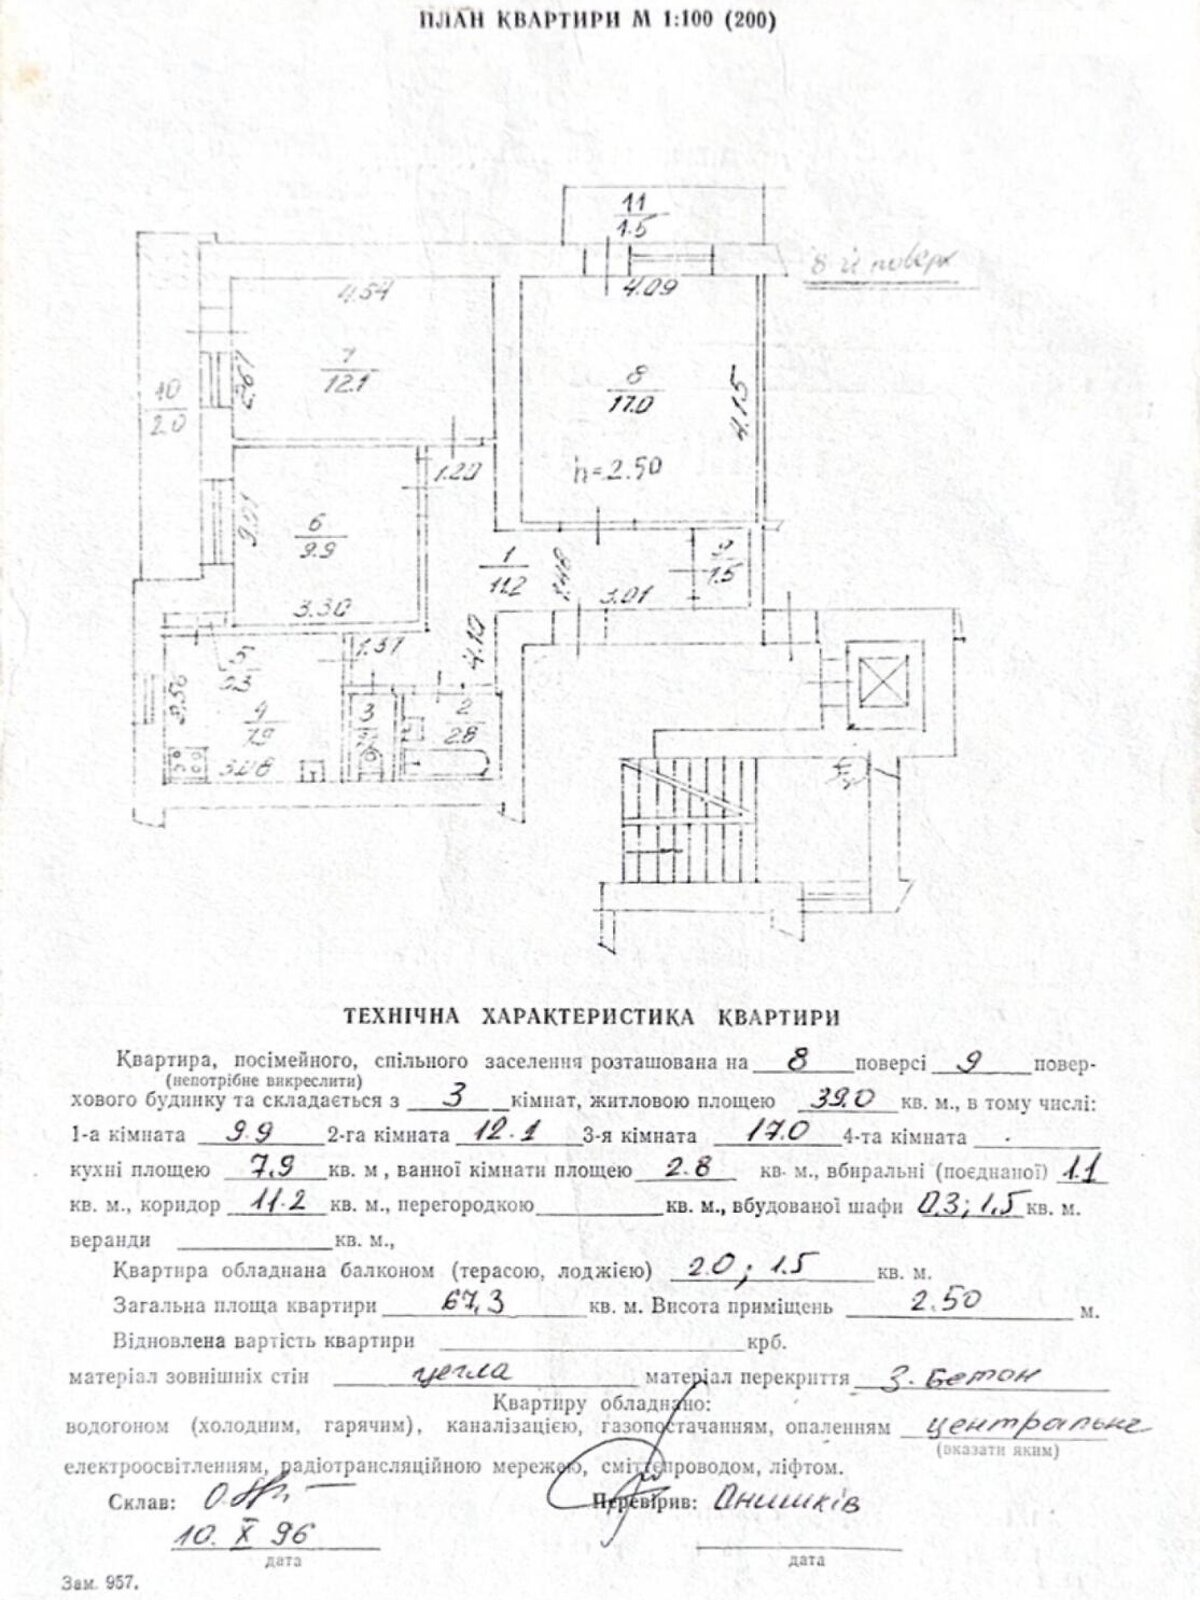 ПЛАН КВАРТИРИ М 1:100 (200)
11
1.5
8 й поверх
4.54
4.09
7
12.1
2.67
8
17.0
4.15
10
2.0
1.20
h=2.50
6
9.9
3.01
1
11.2
1.48
9
1.5
3.30
3.01
1.37
4.10
5
2.56
4
7.9
3
2
2.8
3.08
ТЕХНІЧНА ХАРАКТЕРИСТИКА КВАРТИРИ
Квартира, посімейного, спільного заселення розташована на 8 поверсі 9 повер-
(непотрібне викреслити)
хового будинку та складається з 3 кімнат, житловою площею 39.0 кв. м., в тому числі:
1-а кімната 9.9 2-га кімната 12.1 3-я кімната 17.0 4-та кімната
кухні площею 7,9 кв. м, ванної кімнати площею 2.8 кв. м., вбиральні (поєднаної) 1.1
кв. м., коридор 11.2 кв. м., перегородкою кв. м., вбудованої шафи 0,3; 1,5 кв. м.
веранди кв. м.,
Квартира обладнана балконом (терасою, лоджією) 2.0; 1.5 кв. м.
Загальна площа квартири 67,3 кв. м. Висота приміщень 2.50 м.
Відновлена вартість квартири крб.
матеріал зовнішніх стін цегла матеріал перекриття з. бетон
Квартиру обладнано:
водогоном (холодним, гарячим), каналізацією, газопостачанням, опаленням центральне
(вказати яким)
електроосвітленням, радіотрансляційною мережею, сміттєпроводом, ліфтом.
Склав: Перевірив: Онишків
10. X 96
дата дата
Зам. 957.